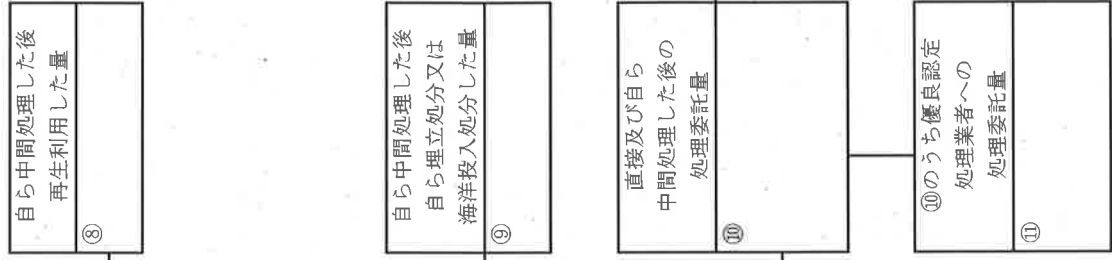 自ら中間処理した後
再生利用した量
⑧
自ら中間処理した後
自ら埋立処分又は
海洋投入処分した量
⑨
直接及び自ら
中間処理した後の
処理委託量
⑩
⑩のうち優良認定
処理業者への
処理委託量
⑪